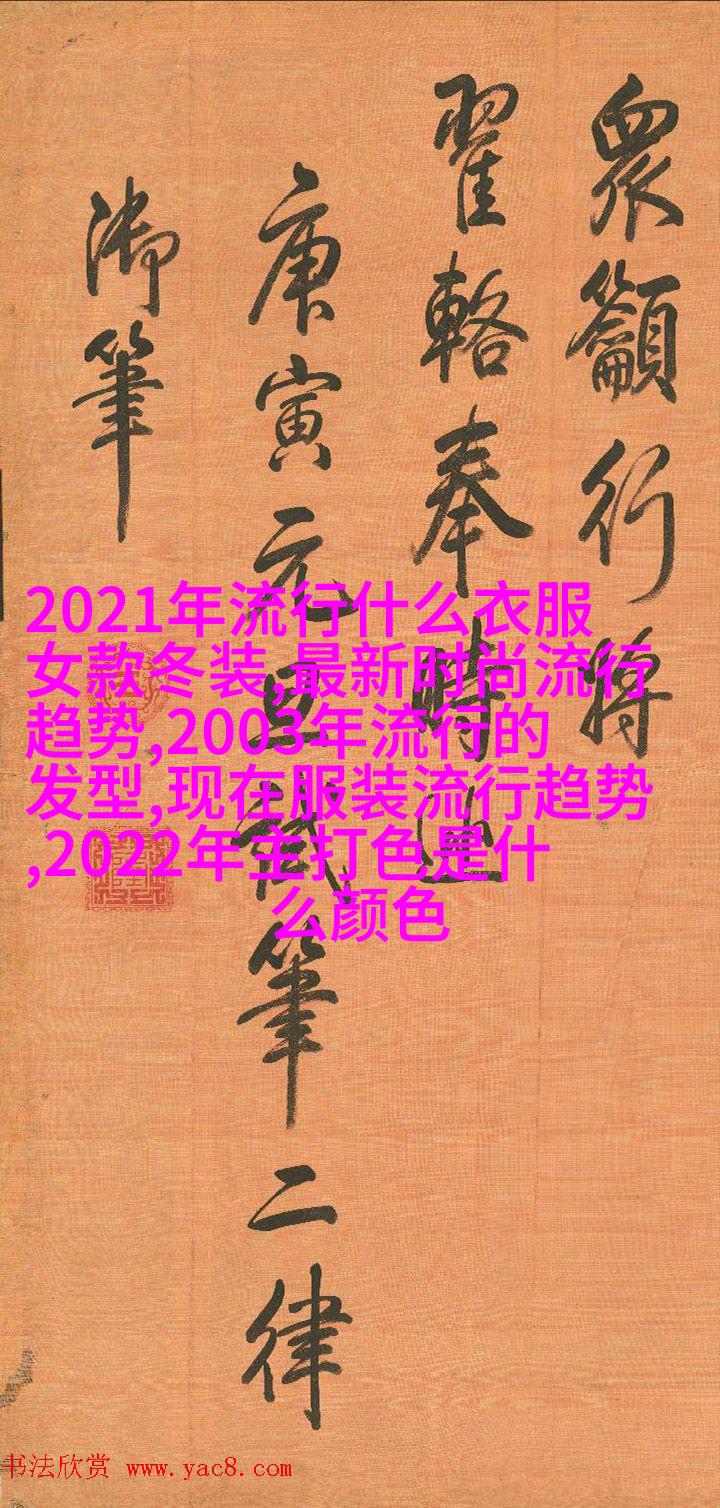 眾籲行將
翟輅奉時巡
庚寅元旦試筆二律
御筆
2021年流行什么衣服
女款冬装,最新时尚流行
趋势,2003年流行的
发型,现在服装流行趋势
,2022年主打色是什
么颜色
书法欣赏 www.yac8.com